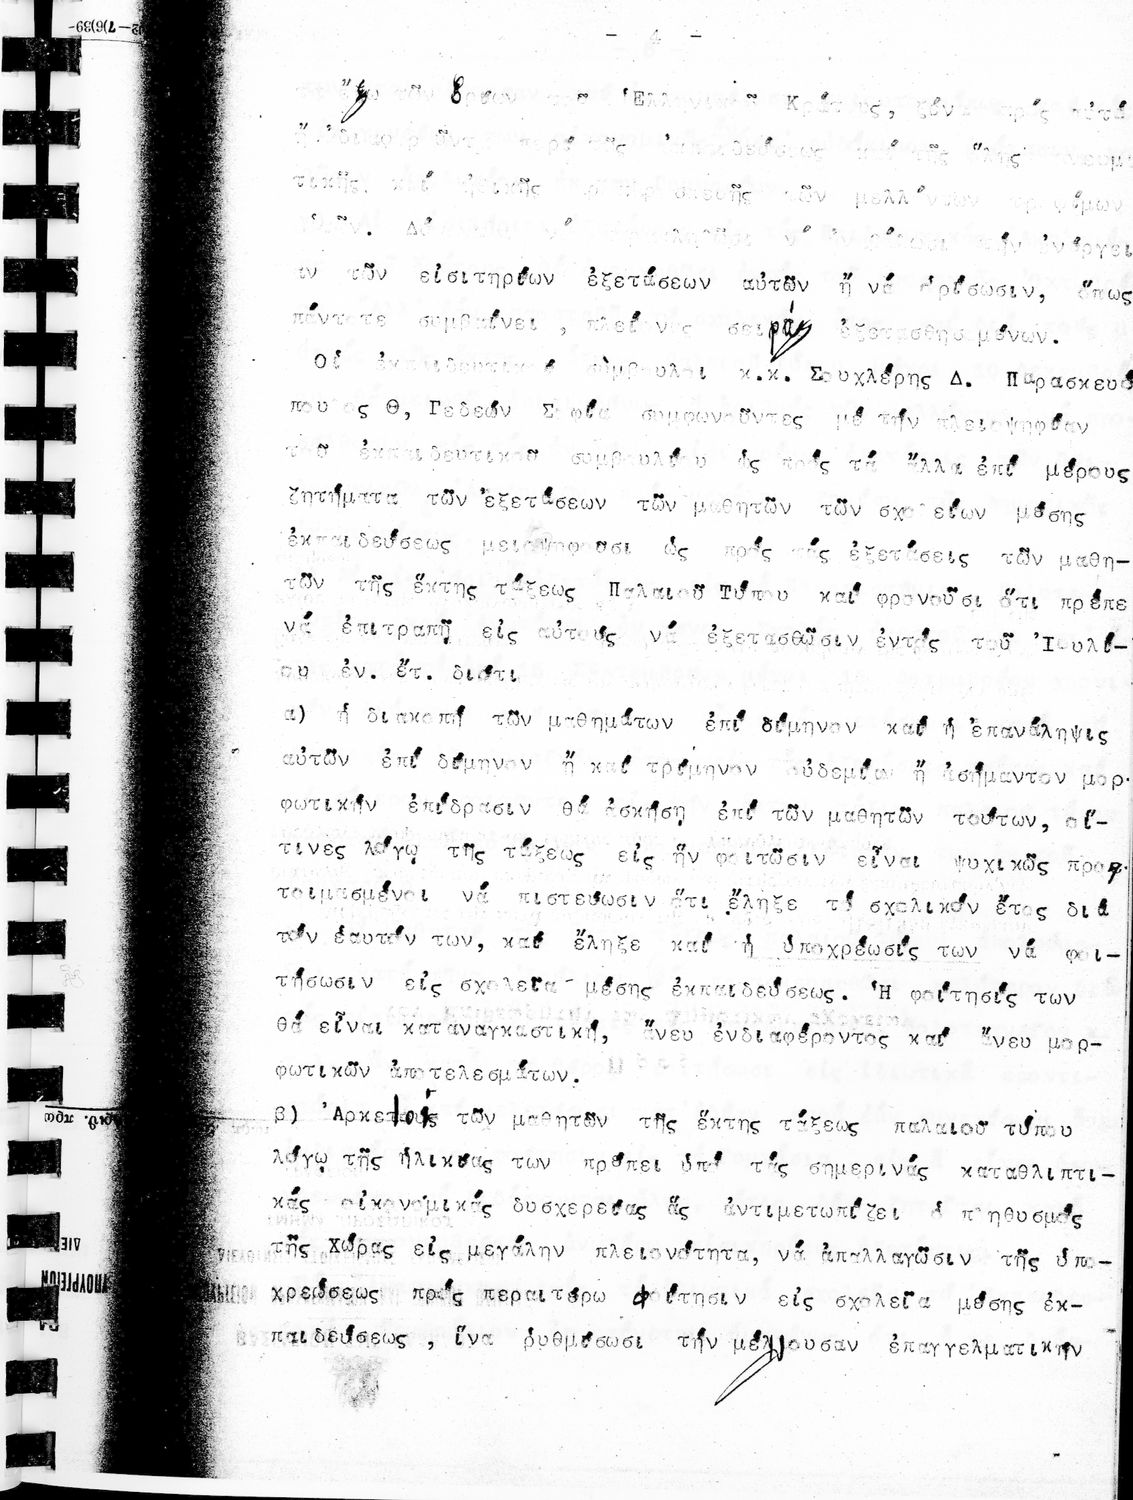 - 4 -
ἔξω τῶν ὁρίων τοῦ Ἑλληνικοῦ Κράτους, ξένα πρός αὐτά
τικῆς καί ἠθικῆς τῶν μελλόντων τροφίμων
εἰσιτηρίων ἐξετάσεων αὐτῶν ἤ νά ὁρίσωσιν, ὅπως
πάντοτε συμβαίνει , πλείονας σειράς ἐξετασθησομένων.
Οἱ ἐκπαιδευτικοί σύμβουλοι κ.κ. Σουχλέρης Δ. Παρασκευό
πουλος Θ, Γεδεών Σοφία συμφωνοῦντες μέ τήν πλειοψηφίαν
τοῦ ἐκπαιδευτικοῦ συμβουλίου ὡς πρός τά ἄλλα ἐπί μέρους
ζητήματα τῶν ἐξετάσεων τῶν μαθητῶν τῶν σχολείων μέσης
ἐκπαιδεύσεως μειοψηφοῦσι ὡς πρός τάς ἐξετάσεις τῶν μαθη-
τῶν τῆς ἕκτης τάξεως Παλαιοῦ Τύπου καί φρονοῦσι ὅτι πρέπε
νά ἐπιτραπῇ εἰς αὐτούς νά ἐξετασθῶσιν ἐντός τοῦ Ἰουλί-
ου ἐν. ἔτ. διότι
α) ἡ διακοπή τῶν μαθημάτων ἐπί δίμηνον καί ἡ ἐπανάληψις
αὐτῶν ἐπί δίμηνον ἤ καί τρίμηνον οὐδεμίαν ἤ ἀσήμαντον μορ-
φωτικήν ἐπίδρασιν θά ἀσκήσῃ ἐπί τῶν μαθητῶν τούτων, οἵ-
τινες λόγῳ τῆς τάξεως εἰς ἥν φοιτῶσιν εἶναι ψυχικῶς προη-
τοιμασμένοι νά πιστεύωσιν ὅτι ἔληξε τό σχολικόν ἔτος διά
τόν ἑαυτόν των, καί ἔληξε καί ἡ ὑποχρέωσίς των νά φοι-
τήσωσιν εἰς σχολεῖα μέσης ἐκπαιδεύσεως. Ἡ φοίτησίς των
θά εἶναι καταναγκαστική, ἄνευ ἐνδιαφέροντος καί ἄνευ μορ-
φωτικῶν ἀποτελεσμάτων.
β) Ἀρκετοί τῶν μαθητῶν τῆς ἕκτης τάξεως παλαιοῦ τύπου
λόγῳ τῆς ἡλικίας των πρέπει ὑπό τάς σημερινάς καταθλιπτι-
κάς οἰκονομικάς δυσχερείας ἅς ἀντιμετωπίζει ὁ πληθυσμός
τῆς Χώρας εἰς μεγάλην πλειονότητα, νά ἀπαλλαγῶσιν τῆς ὑπο-
χρεώσεως πρός περαιτέρω φοίτησιν εἰς σχολεῖα μέσης ἐκ-
παιδεύσεως , ἵνα ῥυθμίσωσι τήν μέλλουσαν ἐπαγγελματικήν